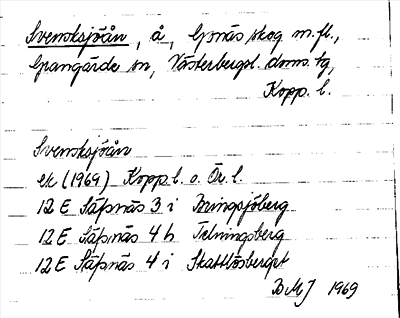 Svensksjöån, å, Gsnäs skog m.fl.,
Grangärde sn, Västerbergsl. doms. tg,
Kopp. l.
Svensksjöån
ek (1969) Kopp. l. o. Ör. l.
12 E Säfsnäs 3 i Bringsjöberg
12 E Säfsnäs 4 h Tolningsberg
12 E Säfsnäs 4 i Skattlösberget
BMJ 1969